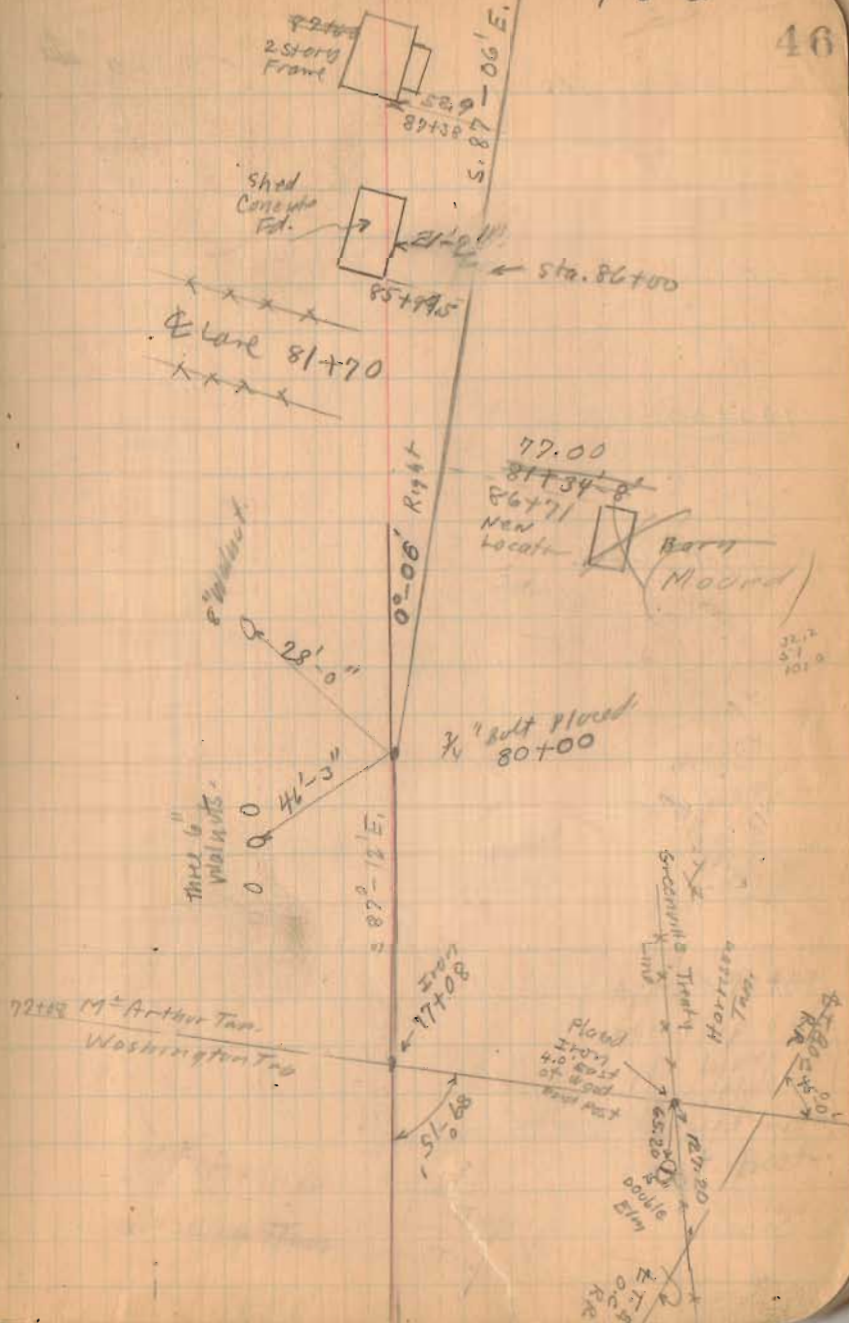 46
2 story
Frame
58.9
87+38
S. 87 - 06' E.
Shed
Concrete
Fd.
Sta. 86+00
85+99.5
℄ Lane 81+70
0°-06' Right
77.00
81+34-8'
86+71
New
Locatn
Barn
(Moved)
8" Walnut
28'-0"
3/4" Bolt Placed
80+00
46'-3"
Three 6"
Walnuts
S. 87°-12' E.
Iron
77+08
72+08 Mc Arthur Twp.
Washington Twp
89°-15'
Greenville Treaty
Line
Harrison
Twp.
Placed
Iron
4.0 East
of Wood
Post
65.20
127.20
Double
Elm
R.R.